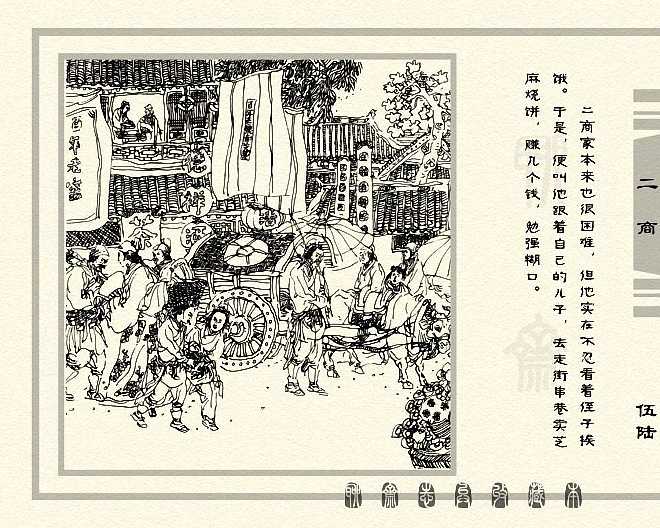 二商
伍陆
二商家本来也很困难，但他实在不忍看着侄子挨
饿。于是，便叫他跟着自己的儿子，去走街串巷卖芝
麻烧饼，赚几个钱，勉强糊口。